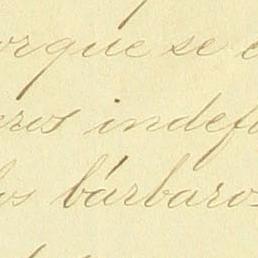 orque se
eros indef
los bárbaros